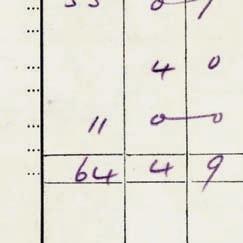 53 0 9
4 0
11 0 0
64 4 9